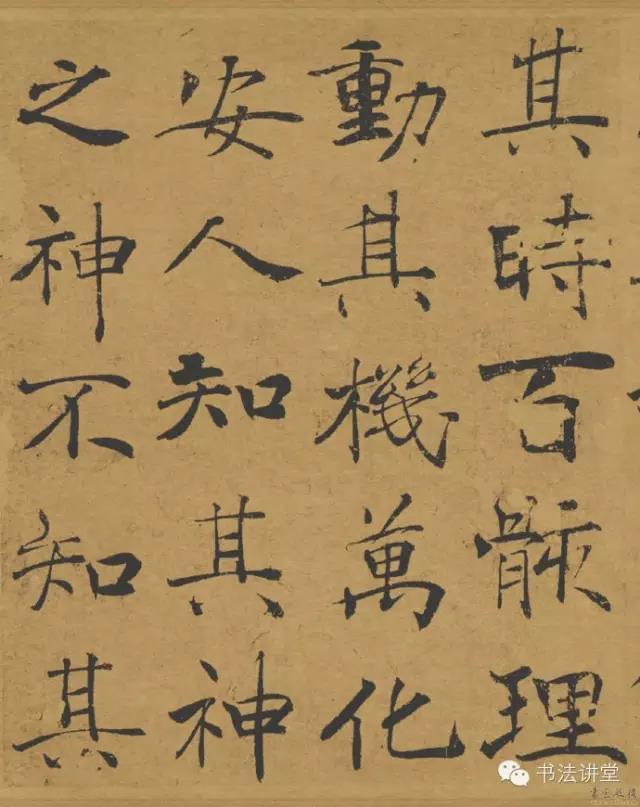 其時百骸理
動其機萬化
安人知其神
之神不知其
书法讲堂